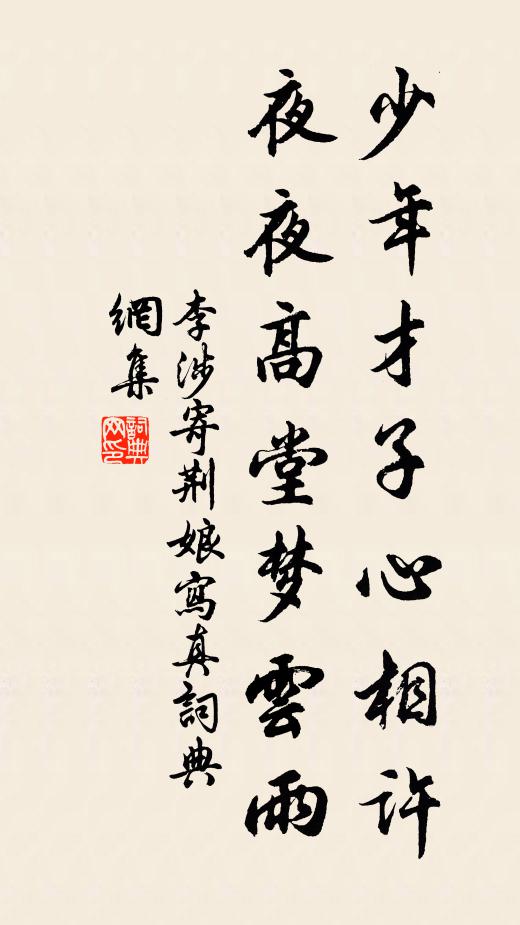 少年才子心相許
夜夜高堂梦雲雨
李涉寄荆娘寫真詞典
網集
詞典
网印